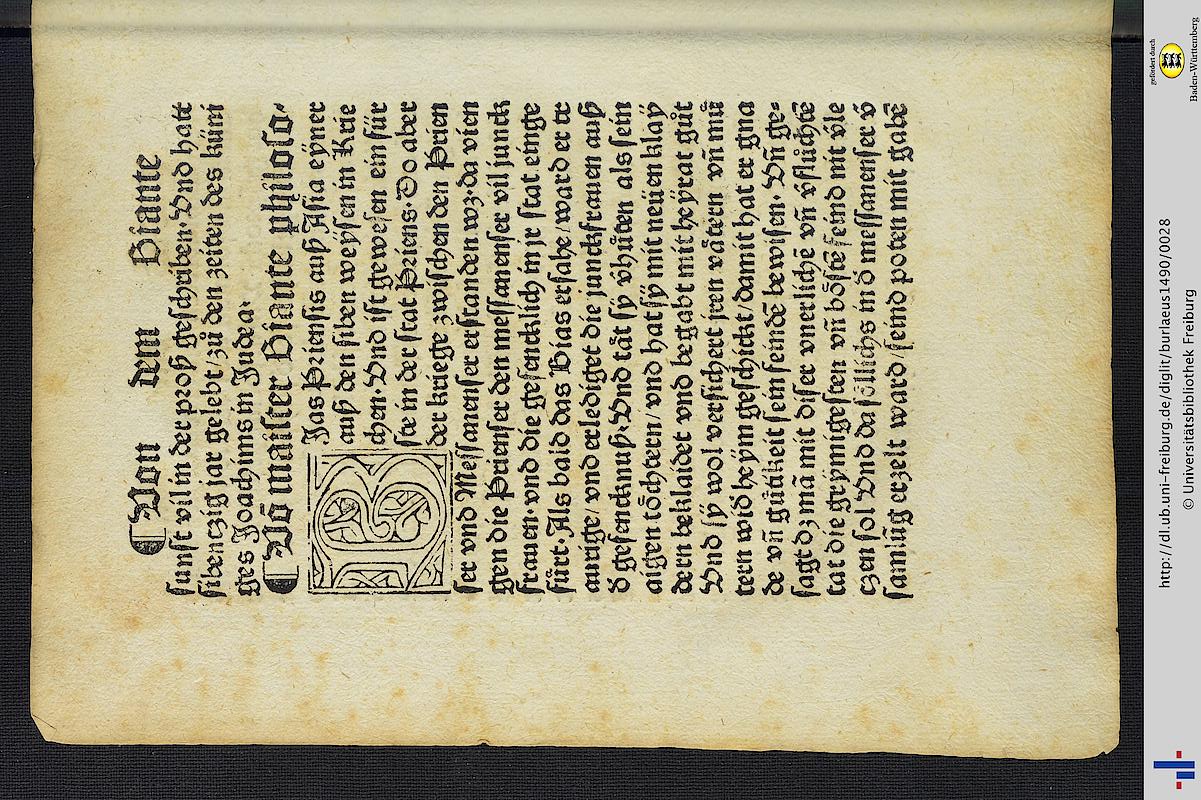 ¶Von dem Biante
sunst vil in der proß geschriben. Vnd hatt
sibenczig jar gelebt / zů den zeiten des küni
ges Joachims in Judea.
¶Vō maister Biante philoso-
BJas Priensis auß Asia eyner
auß den siben weysen in Krie
chen. Vnd ist gewesen ein für
ste in der stat Priens. Do aber
der kriege zwischen den Prien
ser vnd Messanenser erstanden wz. da vien
gen die Prienser den messanenser vil junck
frauen. vnd die gefencklich in jr stat einge
fürt. Als baid das Bias ersahe / ward er tr
aurige / vnd erlediget die junckfrauen auß
d̄ gefencknuß. Vnd tät sÿ v̄hüten als sein
aigen töchtern / vnd hat sÿ mit neüen klaÿ
dern beklaidet vnd begabt mit heÿrat gůt
Vnd sÿ wol versichert jren vätern vn̄ mů
tern wid̄ heÿm geschickt / damit hat er gna
de vn̄ gütikeit sein feindē bewisen. Vn̄ ge-
sagt dz mā mit diser vnerlichē vn̄ v̄fluchtē
tat die grymmigesten vn̄ bőstē feind nit v̄le
czen sol Vnd da söllichs in d̄ messanenser v̄
samlūg erzelt ward / seind poten mit gabē
http://dl.ub.uni-freiburg.de/diglit/burlaeus1490/0028
© Universitätsbibliothek Freiburg
gefördert durch
Baden-Württemberg